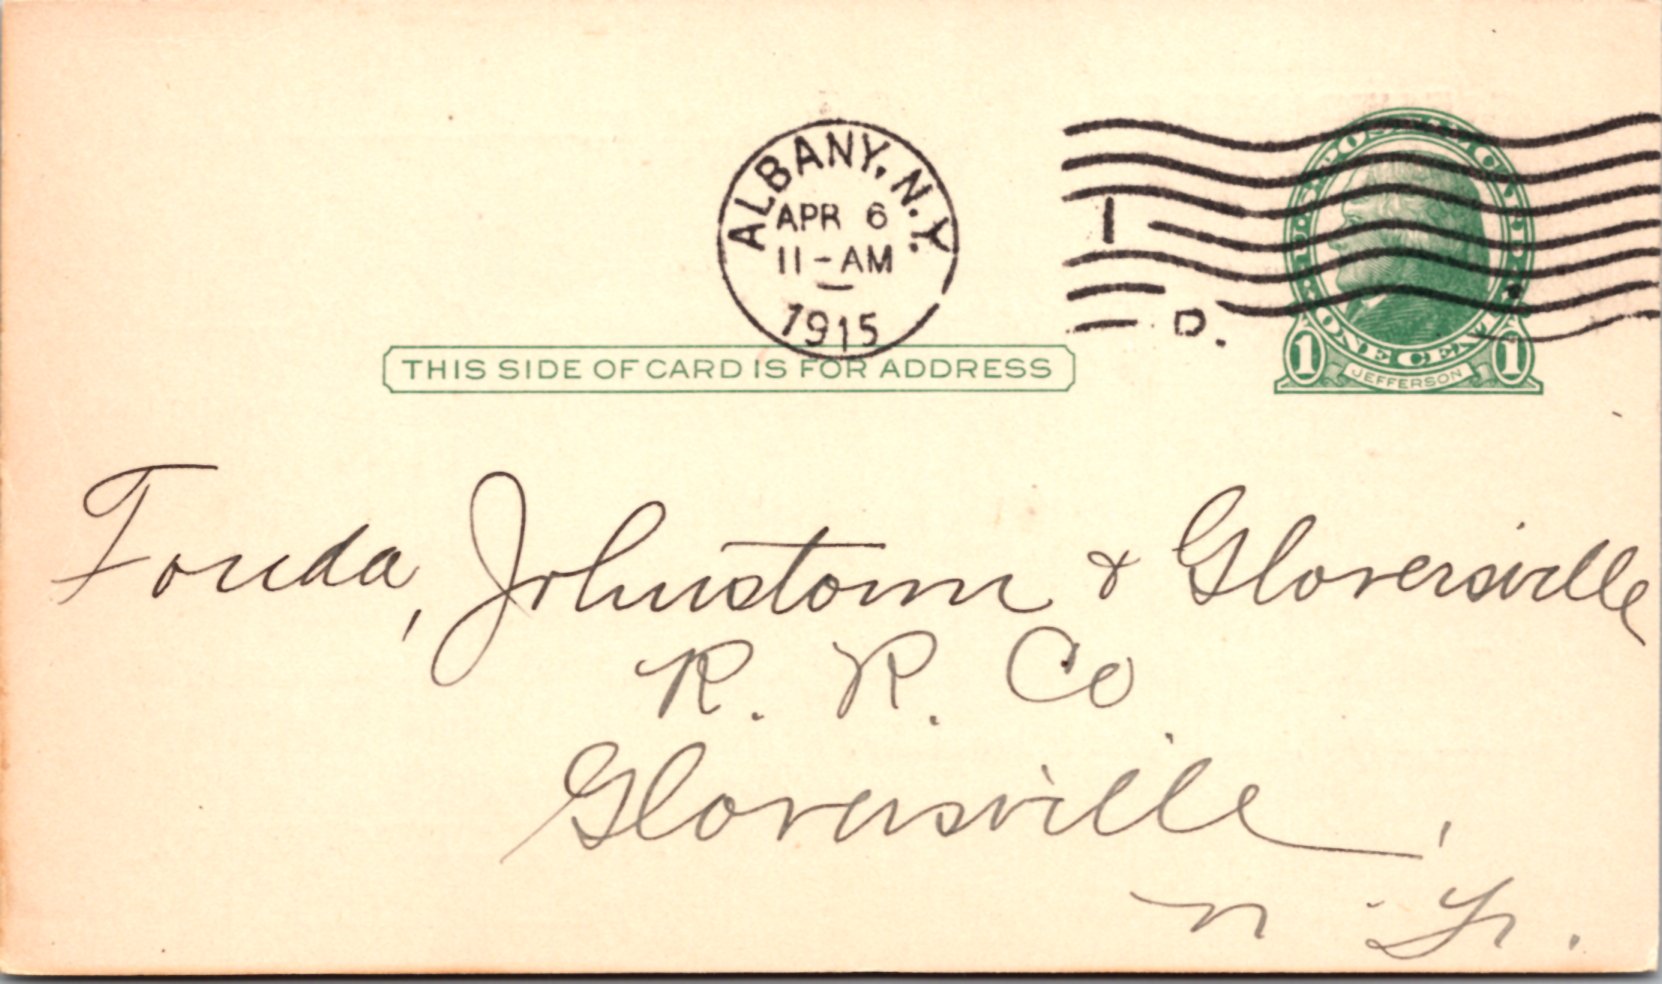 ALBANY, N.Y.
APR 6
11-AM
1915
1
D.
U.S. POSTAL CARD
ONE CENT
1 JEFFERSON 1
THIS SIDE OF CARD IS FOR ADDRESS
Fonda, Johnstown & Gloversville
R. R. Co
Gloversville,
N. Y.